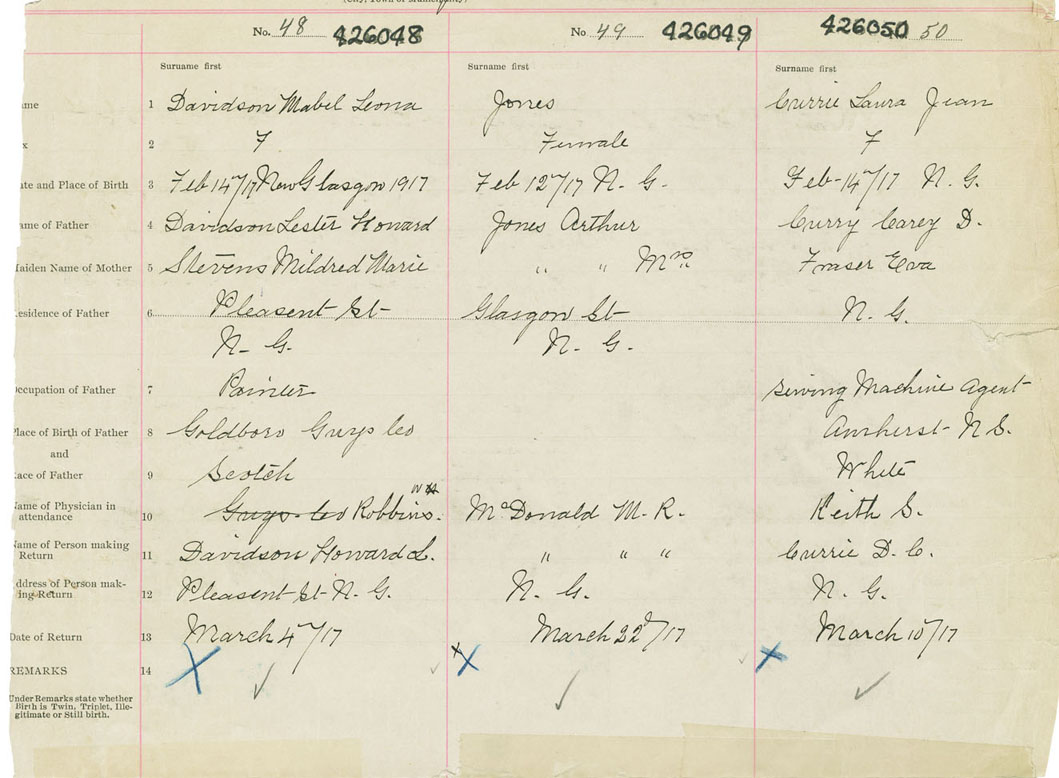 No. 48 426048 No 49 426049 426050 50
Surname first Surname first Surname first
1 Davidson Mabel Leona Jones Currie Laura Jean
2 F Female F
ate and Place of Birth 3 Feb 14"/17 New Glasgow 1917 Feb 12"/17 N. G. Feb-14"/17 N. G.
ame of Father 4 Davidson Lester Howard Jones Arthur Curry Carey D.
Maiden Name of Mother 5 Stevens Mildred Marie " " Mrs. Fraser Eva
esidence of Father 6 Pleasent St- Glasgow St- N. G.
N- G. N. G.
Occupation of Father 7 Painter Sewing Machine Agent
Place of Birth of Father 8 Goldboro Guys Co Amherst N S.
and
ace of Father 9 Scotch White
Name of Physician in
attendance 10 Guys. Co Robbins. McDonald M. R. Keith S.
Name of Person making
Return 11 Davidson Howard L. " " " Currie D. C.
ddress of Person mak-
ing Return 12 Pleasent St N. G. N. G. N. G.
Date of Return 13 March 4"/17 March 22d/17 March 10"/17
REMARKS 14
Under Remarks state whether
Birth is Twin, Triplet, Ille-
gitimate or Still birth.